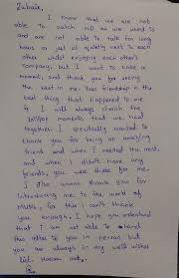 Zubair,
I know that we are not
able to catch up as we used to
and are not able to talk for long
hours or just sit quietly next to each
other whilst enjoying each other's
company, but I want to take a
moment, and thank you for being
the best in me. Your friendship is the
best thing that happened to me
& I will always cherish the
moments that we had
together. I specially wanted to
thank you for being an amazing
friend and when I needed the most,
and when I didn't have any
friends, you were there for me.
I also wanna thank you for
introducing me to the world of
Music, for this I can't thank
you enough. I hope you understand
that I am not able to
this letter to you in person but
you are always in my well wishes
list.